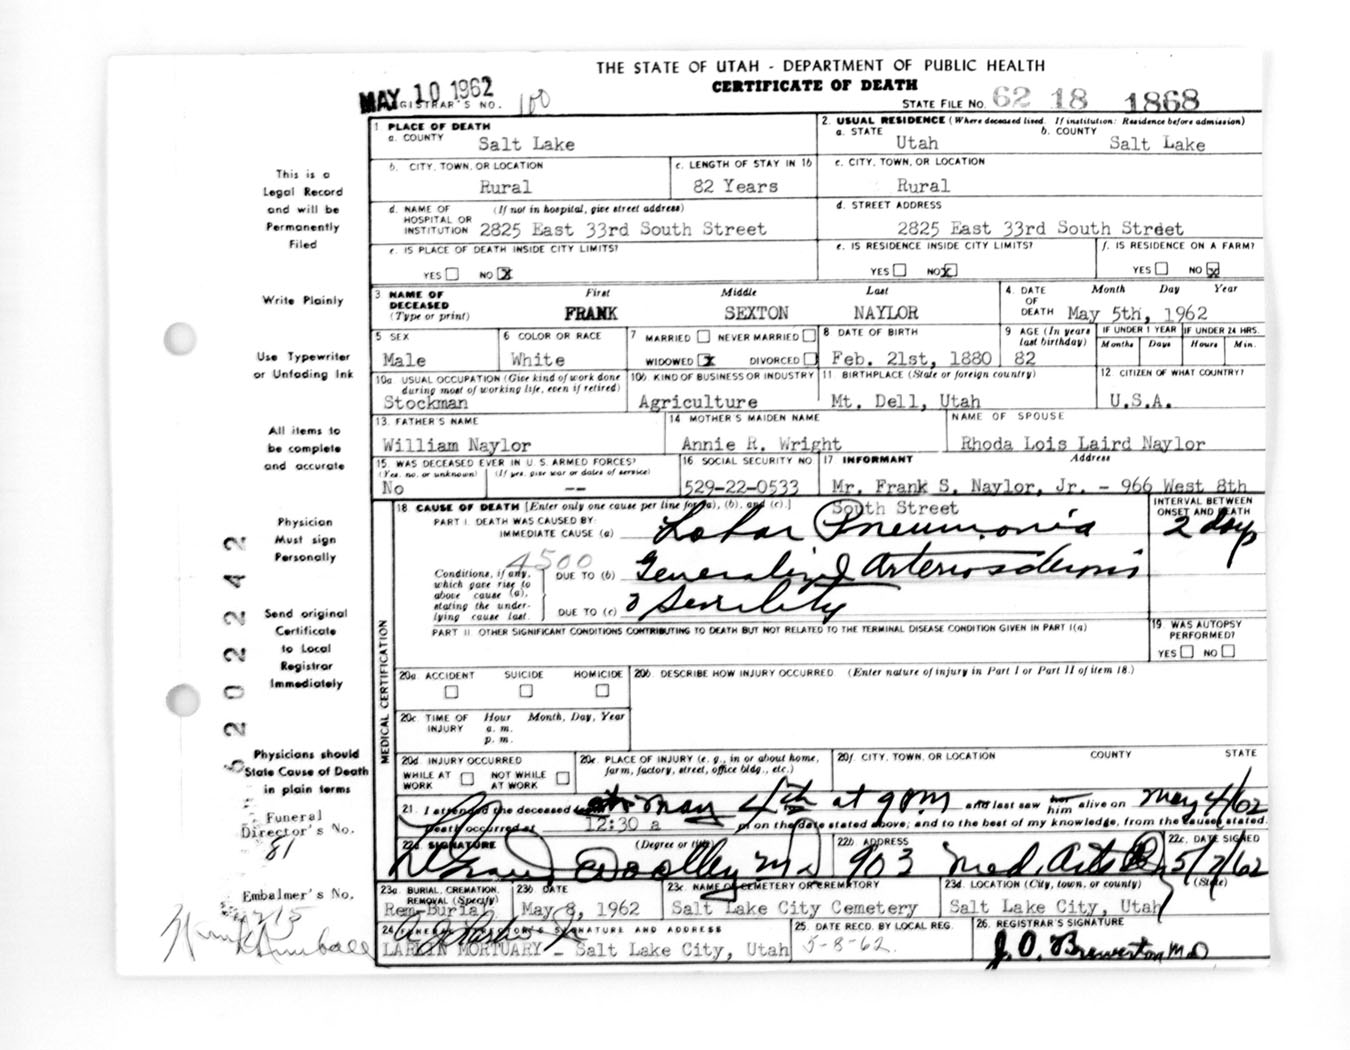 THE STATE OF UTAH - DEPARTMENT OF PUBLIC HEALTH
CERTIFICATE OF DEATH
MAY 10 1962
REGISTRAR'S NO. 100
STATE FILE NO. 62 18 1868
1 PLACE OF DEATH
a. COUNTY Salt Lake
2. USUAL RESIDENCE (Where deceased lived. If institution: Residence before admission)
a. STATE Utah b. COUNTY Salt Lake
b. CITY, TOWN, OR LOCATION Rural
c. LENGTH OF STAY IN 1b 82 Years
c. CITY, TOWN, OR LOCATION Rural
d. NAME OF HOSPITAL OR INSTITUTION (If not in hospital, give street address) 2825 East 33rd South Street
d. STREET ADDRESS 2825 East 33rd South Street
e. IS PLACE OF DEATH INSIDE CITY LIMITS?
YES NO X
e. IS RESIDENCE INSIDE CITY LIMITS?
YES NO X
f. IS RESIDENCE ON A FARM?
YES NO X
3 NAME OF DECEASED (Type or print)
First Middle Last
FRANK SEXTON NAYLOR
4. DATE OF DEATH Month Day Year
May 5th, 1962
5 SEX Male
6 COLOR OR RACE White
7 MARRIED NEVER MARRIED
WIDOWED X DIVORCED
8 DATE OF BIRTH Feb. 21st, 1880
9 AGE (In years last birthday) 82
IF UNDER 1 YEAR Months Days
IF UNDER 24 HRS. Hours Min.
10a USUAL OCCUPATION (Give kind of work done during most of working life, even if retired)
Stockman
10b KIND OF BUSINESS OR INDUSTRY
Agriculture
11. BIRTHPLACE (State or foreign country)
Mt. Dell, Utah
12. CITIZEN OF WHAT COUNTRY?
U.S.A.
13. FATHER'S NAME
William Naylor
14 MOTHER'S MAIDEN NAME
Annie R. Wright
NAME OF SPOUSE
Rhoda Lois Laird Naylor
15 WAS DECEASED EVER IN U. S. ARMED FORCES?
(Yes, no, or unknown) (If yes, give war or dates of service)
No --
16 SOCIAL SECURITY NO
529-22-0533
17 INFORMANT Address
Mr. Frank S. Naylor, Jr. - 966 West 8th
South Street
18 CAUSE OF DEATH [Enter only one cause per line for (a), (b), and (c).]
INTERVAL BETWEEN ONSET AND DEATH
PART I. DEATH WAS CAUSED BY:
IMMEDIATE CAUSE (a) Lobar Pneumonia 2 days
4500
Conditions, if any, which gave rise to above cause (a), stating the underlying cause last.
DUE TO (b) Generalized Arteriosclerosis
DUE TO (c) Senility
PART II. OTHER SIGNIFICANT CONDITIONS CONTRIBUTING TO DEATH BUT NOT RELATED TO THE TERMINAL DISEASE CONDITION GIVEN IN PART I(a)
19. WAS AUTOPSY PERFORMED?
YES NO
MEDICAL CERTIFICATION
20a. ACCIDENT SUICIDE HOMICIDE
20b. DESCRIBE HOW INJURY OCCURRED. (Enter nature of injury in Part I or Part II of item 18.)
20c. TIME OF INJURY Hour Month, Day, Year
a. m.
p. m.
20d. INJURY OCCURRED
WHILE AT WORK NOT WHILE AT WORK
20e. PLACE OF INJURY (e. g., in or about home, farm, factory, street, office bldg., etc.)
20f. CITY, TOWN, OR LOCATION COUNTY STATE
21. I attended the deceased May 4th at 9 PM and last saw him alive on May 4/62
Death occurred at 12:30 a m on the date stated above; and to the best of my knowledge, from the causes stated.
22a SIGNATURE (Degree or title)
22b ADDRESS 903 Med. Arts
22c. DATE SIGNED 5/7/62
23a. BURIAL, CREMATION, REMOVAL (Specify)
Rem-Burial
23b DATE
May 8, 1962
23c. NAME OF CEMETERY OR CREMATORY
Salt Lake City Cemetery
23d. LOCATION (City, town, or county) (State)
Salt Lake City, Utah
24 FUNERAL DIRECTOR'S SIGNATURE AND ADDRESS
LARKIN MORTUARY - Salt Lake City, Utah
25. DATE RECD. BY LOCAL REG.
5-8-62.
26. REGISTRAR'S SIGNATURE
J. O. Brewerton M.D
This is a
Legal Record
and will be
Permanently
Filed
Write Plainly
Use Typewriter
or Unfading Ink
All items to
be complete
and accurate
Physician
Must sign
Personally
Send original
Certificate
to Local
Registrar
Immediately
Physicians should
State Cause of Death
in plain terms
Funeral
Director's No.
81
Embalmer's No.